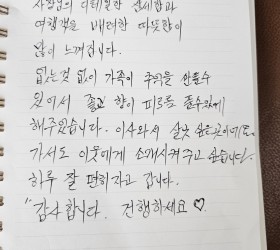 사장님의 디테일한 섬세함과
여행객을 배려한 따뜻함이
많이 느껴집니다.
없는것 없이 가족이 추억을 만들수
있어서 좋고 향이 피로를 풀수있게
해주었습니다. 이사와서 살고
가서도 이웃에게 소개시켜주고 싶습니다.
하루 잘 편히자고 갑니다.
"감사합니다. 건행하세요♡